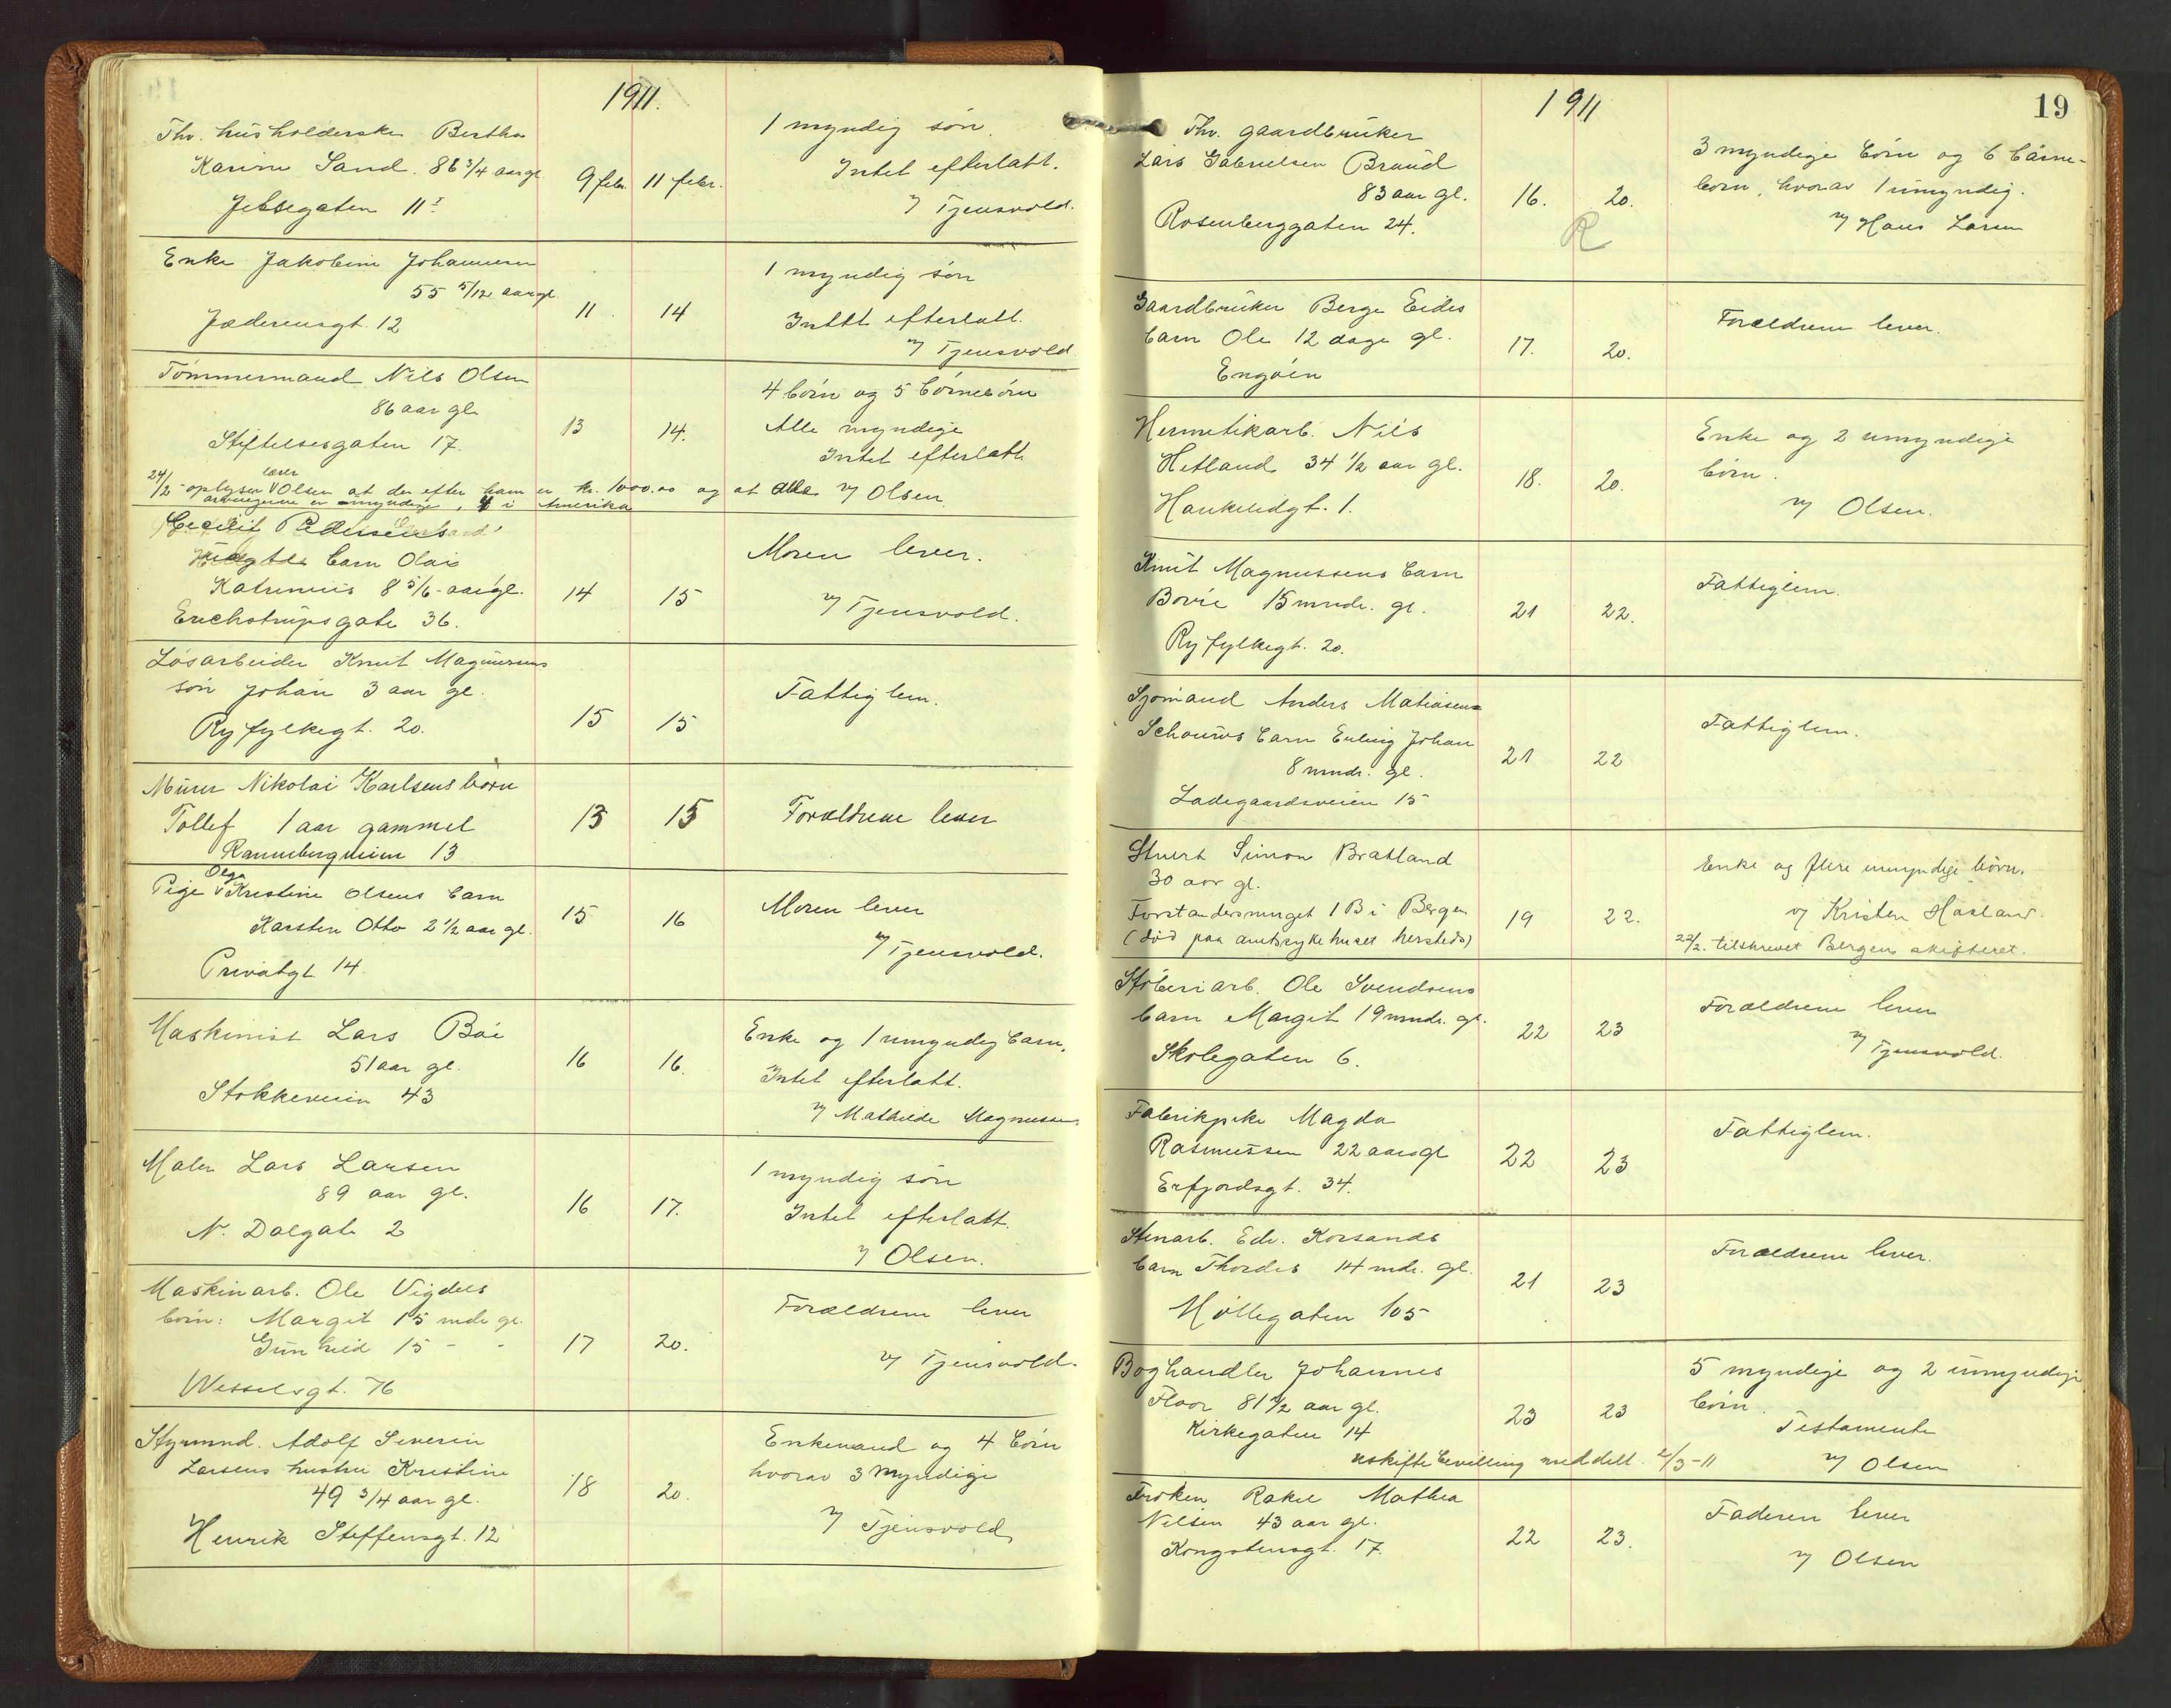 1911.
Thv. husholderske Bertha
Karine Sand. 86 3/4 aar gl.
Jelsegaten 11 I
9 febr. 11 febr.
1 myndig søn.
Intet efterlatt.
v/ Tjensvold.
Enke Jakobine Johannesen
55 5/12 aar gl.
Jæderensgt. 12
11. 14
1 myndig søn
Intet efterlatt.
v/ Tjensvold
Tømmermand Nils Olsen
86 aar gl.
Stiftelsesgaten 17.
13 14.
4 børn og 5 børnebørn
Alle myndige
Intet efterlatt.
v/ Olsen
24/2 oplyser lærer Olsen at der efter ham er kr. 1000.00 og at alle
arvingerne er myndige, 4 i Amerika
barn Olai
Katrinius 8 5/6 aar gl.
Erichstrupsgate 36.
14 15
Moren lever.
v/ Tjensvold.
Løsarbeider Knut Magnussens
søn Johan 3 aar gl.
Ryfylkegt. 20.
15 15
Fattiglem.
Murer Nikolai Karlsens barn
Tollef 1 aar gammel
Rannebergveien 13
13 15
Forældrene lever
Pige Olga Kristine Olsens barn
Karsten Otto 2 1/2 aar gl.
Privatgt 14
15 16
Moren lever
v/ Tjensvold.
Maskinist Lars Bøe
51 aar gl.
Stokkeveien 43
16 16.
Enke og 1 umyndig barn,
Intet efterlatt.
v/ Mathilde Magnussen.
Maler Lars Larsen
89 aar gl.
N. Dalgate 2
16 17.
1 myndig søn
Intet efterlatt.
v/ Olsen.
Maskinarb. Ole Vigdels
børn: Margit 15 mdr gl.
Gunhild 15 - -
Wesselsgt. 76
17 20.
Forældrene lever
v/ Tjensvold.
Styrmnd. Adolf Severin
Larsens hustru Kristine
49 3/4 aar gl.
Henrik Steffensgt. 12
18 20.
Enkemand og 4 børn
hvorav 3 myndige
v/ Tjensvold
1911
19
Thv. gaardbruker
Lars Gabrielsen Braud
83 aar gl.
Rosenberggaten 24.
16. 20.
R
3 myndige børn og 6 børne-
børn, hvorav 1 umyndig.
v/ Hans Larsen
Gaardbruker Berge Eides
barn Ole 12 dage gl.
Engøen
17. 20.
Forældrene lever.
Hermetikarb. Nils
Hetland 34 1/2 aar gl.
Haukelidgt. 1.
18. 20.
Enke og 2 umyndige
børn.
v/ Olsen.
Knut Magnussens barn
15 mndr. gl.
Ryfylkegt. 20.
21 22.
Fattiglem.
Sjømand Anders Matiasen
Schouws barn Erling Johan
8 mndr. gl.
Ladegaardsveien 15
21 22
Fattiglem.
Stuert Simon Bratland
30 aar gl.
Forstandersmuget 1 B i Bergen
(død paa amtsykehuset hersteds)
19 22.
Enke og flere umyndige børn.
v/ Kristen Haaland.
22/2. tilskrevet Bergens skifteret.
Støberiarb. Ole Svendsens
barn Margit 19 mndr. gl.
Skolegaten 6.
22 23
Forældrene lever
v/ Tjensvold.
Fabrikpike Magda
Rasmussen 22 aar gl
Erfjordsgt. 34.
22 23
Fattiglem.
Stenarb. Edv. Korsands
barn Thordis 14 mdr. gl.
Møllegaten 105
21 23
Forældrene lever.
Boghandler Johannes
Floor 81 1/2 aar gl.
Kirkegaten 14
23 23
5 myndige og 2 umyndige
børn.
Testamente
v/ Olsen
uskiftebevilling meddelt 2/3-11
Frøken Rakel Mathea
Nilsen 43 aar gl.
Kongstensgt. 17.
22 23.
Faderen lever
v/ Olsen